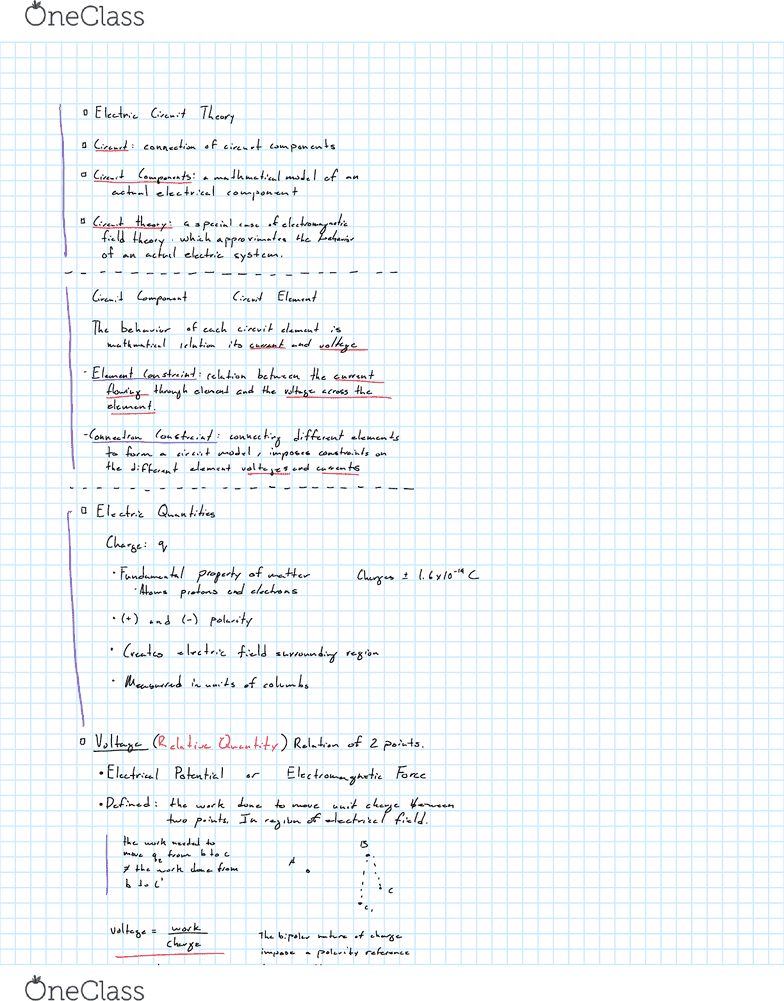 OneClass
Electric Circuit Theory
Circuit: connection of circuit components
Circuit Components: a mathmatical model of an
actual electrical component
Circuit theory: a special case of electromagnetic
field theory. which approximates the behavior
of an actual electric system.
Circuit Component Circuit Element
The behavior of each circuit element is
mathmatical relation its current and voltage
- Element Constraint: relation between the current
flowing through element and the voltage across the
element.
- Connection Constraint: connecting different elements
to form a circuit model, imposes constraints on
the different element voltages and currents
Electric Quantities
Charge: q
• Fundamental property of matter Charges ± 1.6x10⁻¹⁹ C
• Atoms protons and electrons
• (+) and (-) polarity
• Creates electric field surrounding region
• Measurred in units of columbs
Voltage (Relative Quantity) Relation of 2 points.
• Electrical Potential or Electromagnetic Force
• Defined: the work done to move unit charge between
two points. In region of electrical field.
the work needed to
move from b to c
≠ the work done from
b to c'
A
B
C
C'
Voltage = work / charge
The bipolar nature of charge
impose a polarity reference
OneClass